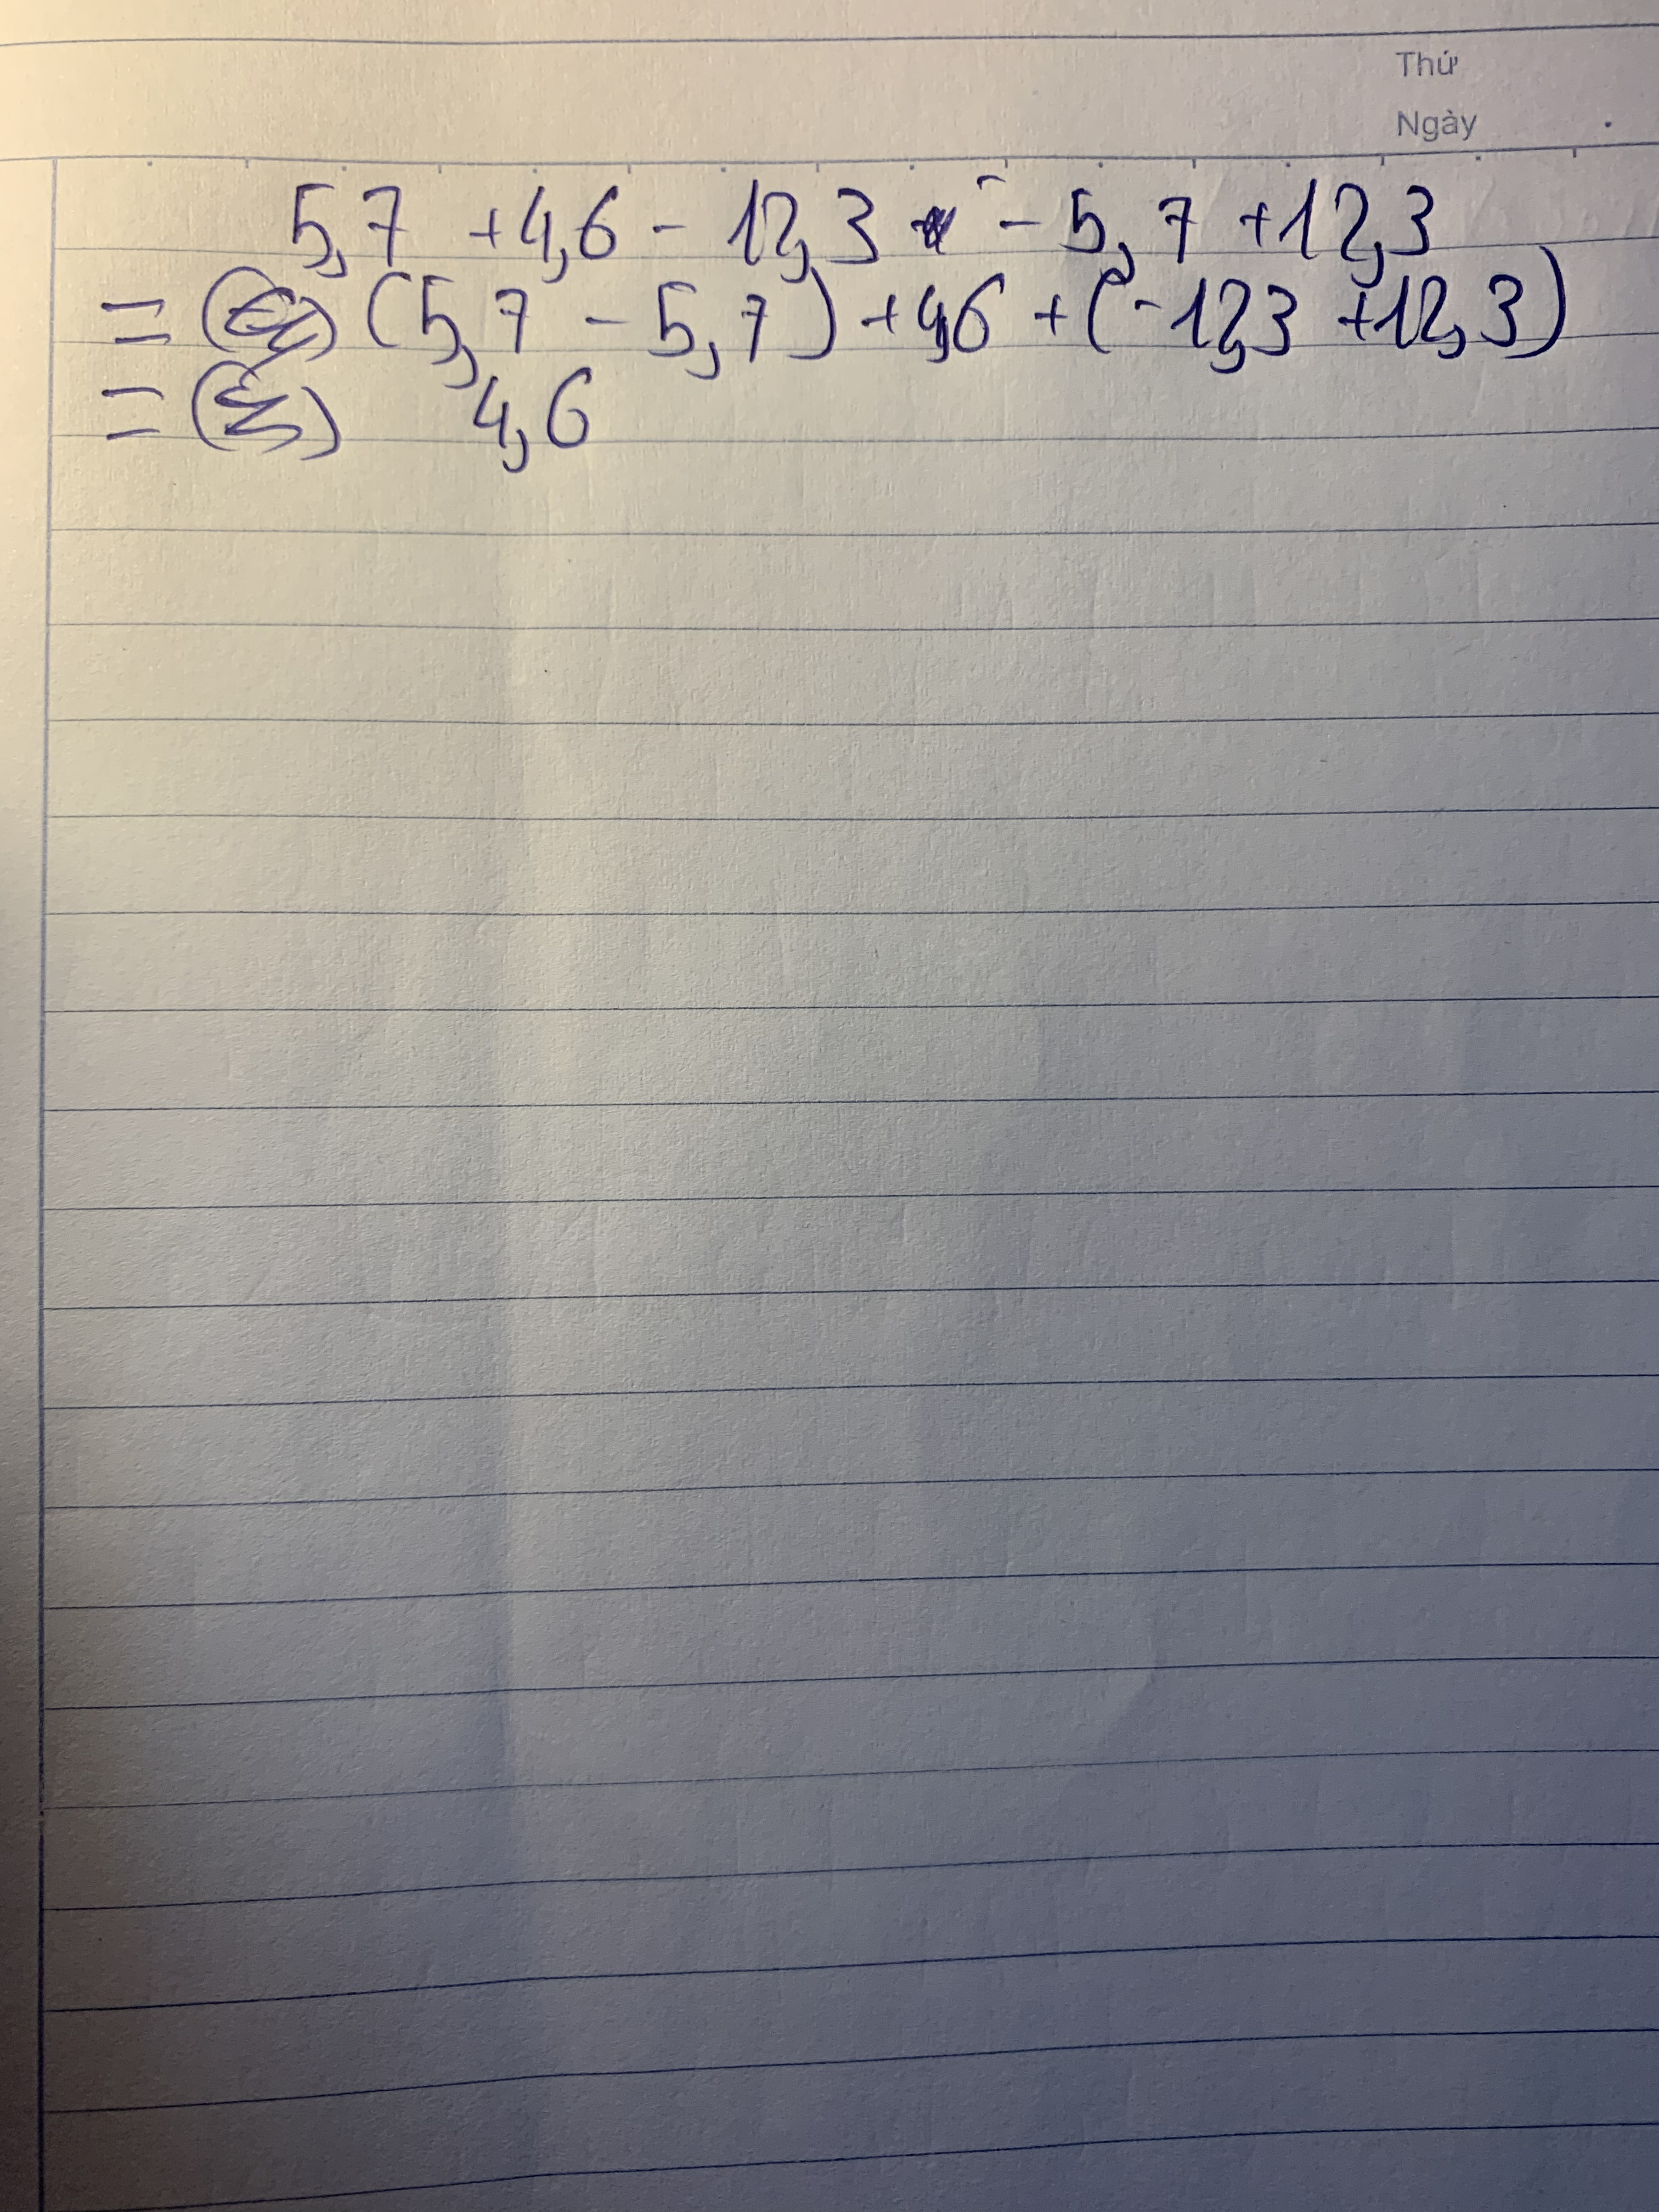 Thứ
Ngày
5,7 +4,6 - 12,3 - 5,7 +12,3
= (5,7 - 5,7) +4,6 + (-12,3 +12,3)
= 4,6